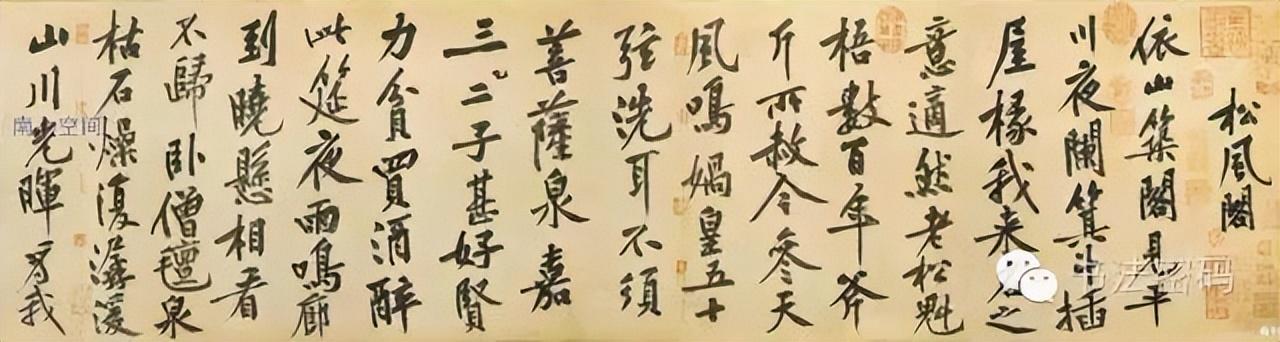 松風閣
依山築閣見平
川夜闌箕斗插
屋椽我来名之
意適然老松魁
梧數百年斧
斤所赦今參天
風鳴媧皇五十
弦洗耳不須
菩薩泉嘉
三二子甚好賢
力貧買酒醉
此筵夜雨鳴廊
到曉懸相看
不歸卧僧氊泉
枯石燥復潺湲
山川光暉為我
书法密码
空间